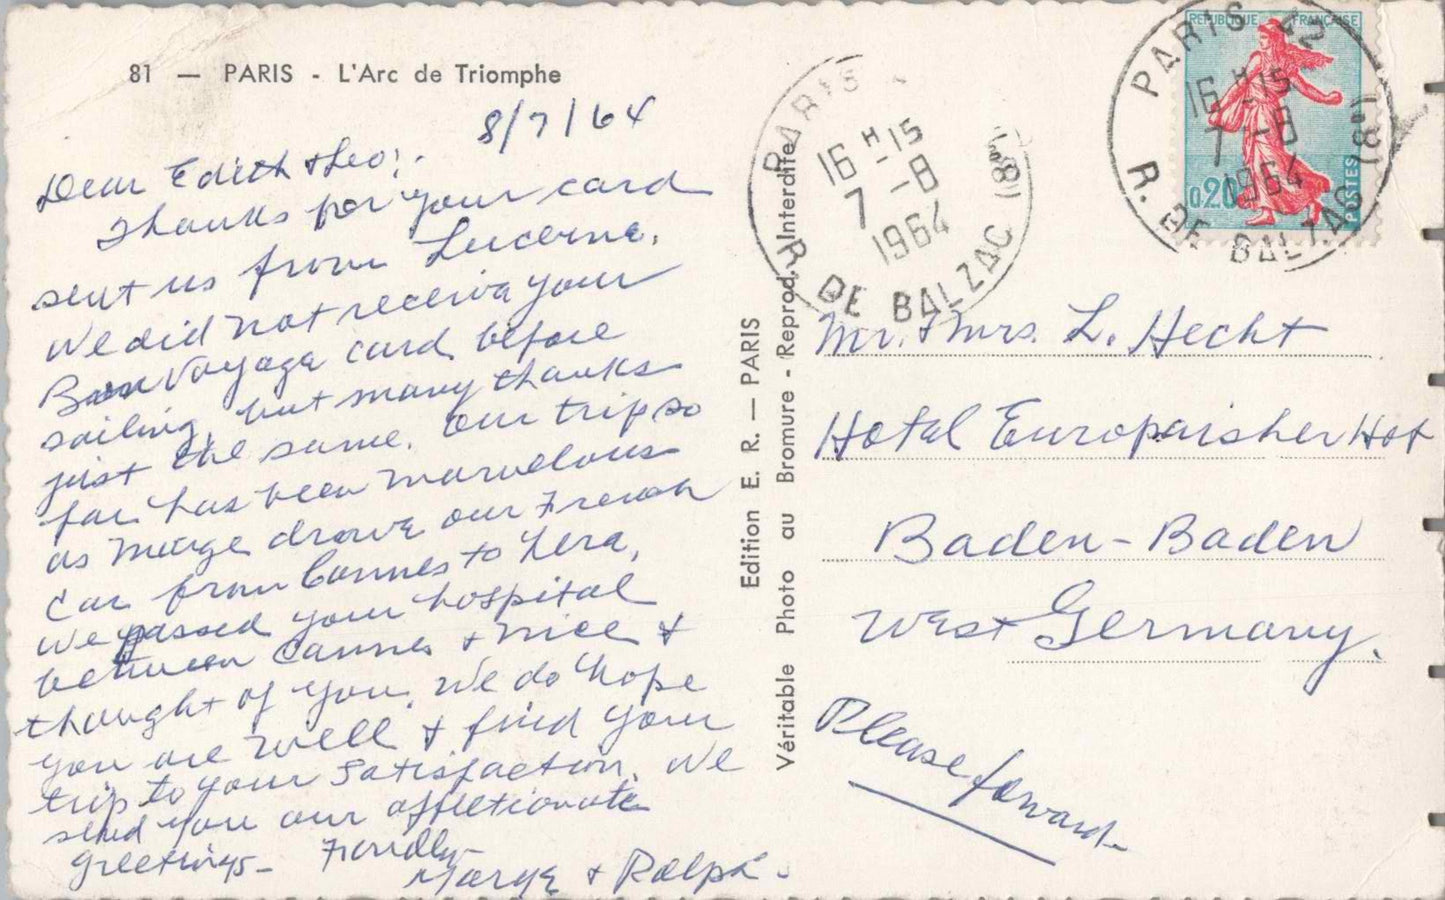 81 — PARIS - L'Arc de Triomphe
8/7/64
Dear Edith & Leo:.
Thanks for your card
sent us from Lucerne.
We did not receive your
Bon Voyage card before
sailing, but many thanks
just the same. Our trip so
far has been marvelous
as Marge drove our French
car from Cannes to
We passed your hospital
between Cannes & Nice &
thought of you. We do hope
you are well & find your
trip to your satisfaction. We
send you our affectionate
greetings - Fondly
Marge & Ralph.
Edition E. R. — PARIS
Véritable Photo au Bromure - Reprod. Interdite
PARIS
16 H -15
7 -8
1964
R. DE BALZAC (8e)
REPUBLIQUE FRANÇAISE
0,20
POSTES
PARIS 22
16 H -15
7 -8
1964
R. DE BALZAC (8e)
Mr. & Mrs. L. Hecht
Hotel Europaisher Hof
Baden-Baden
West Germany.
Please forward